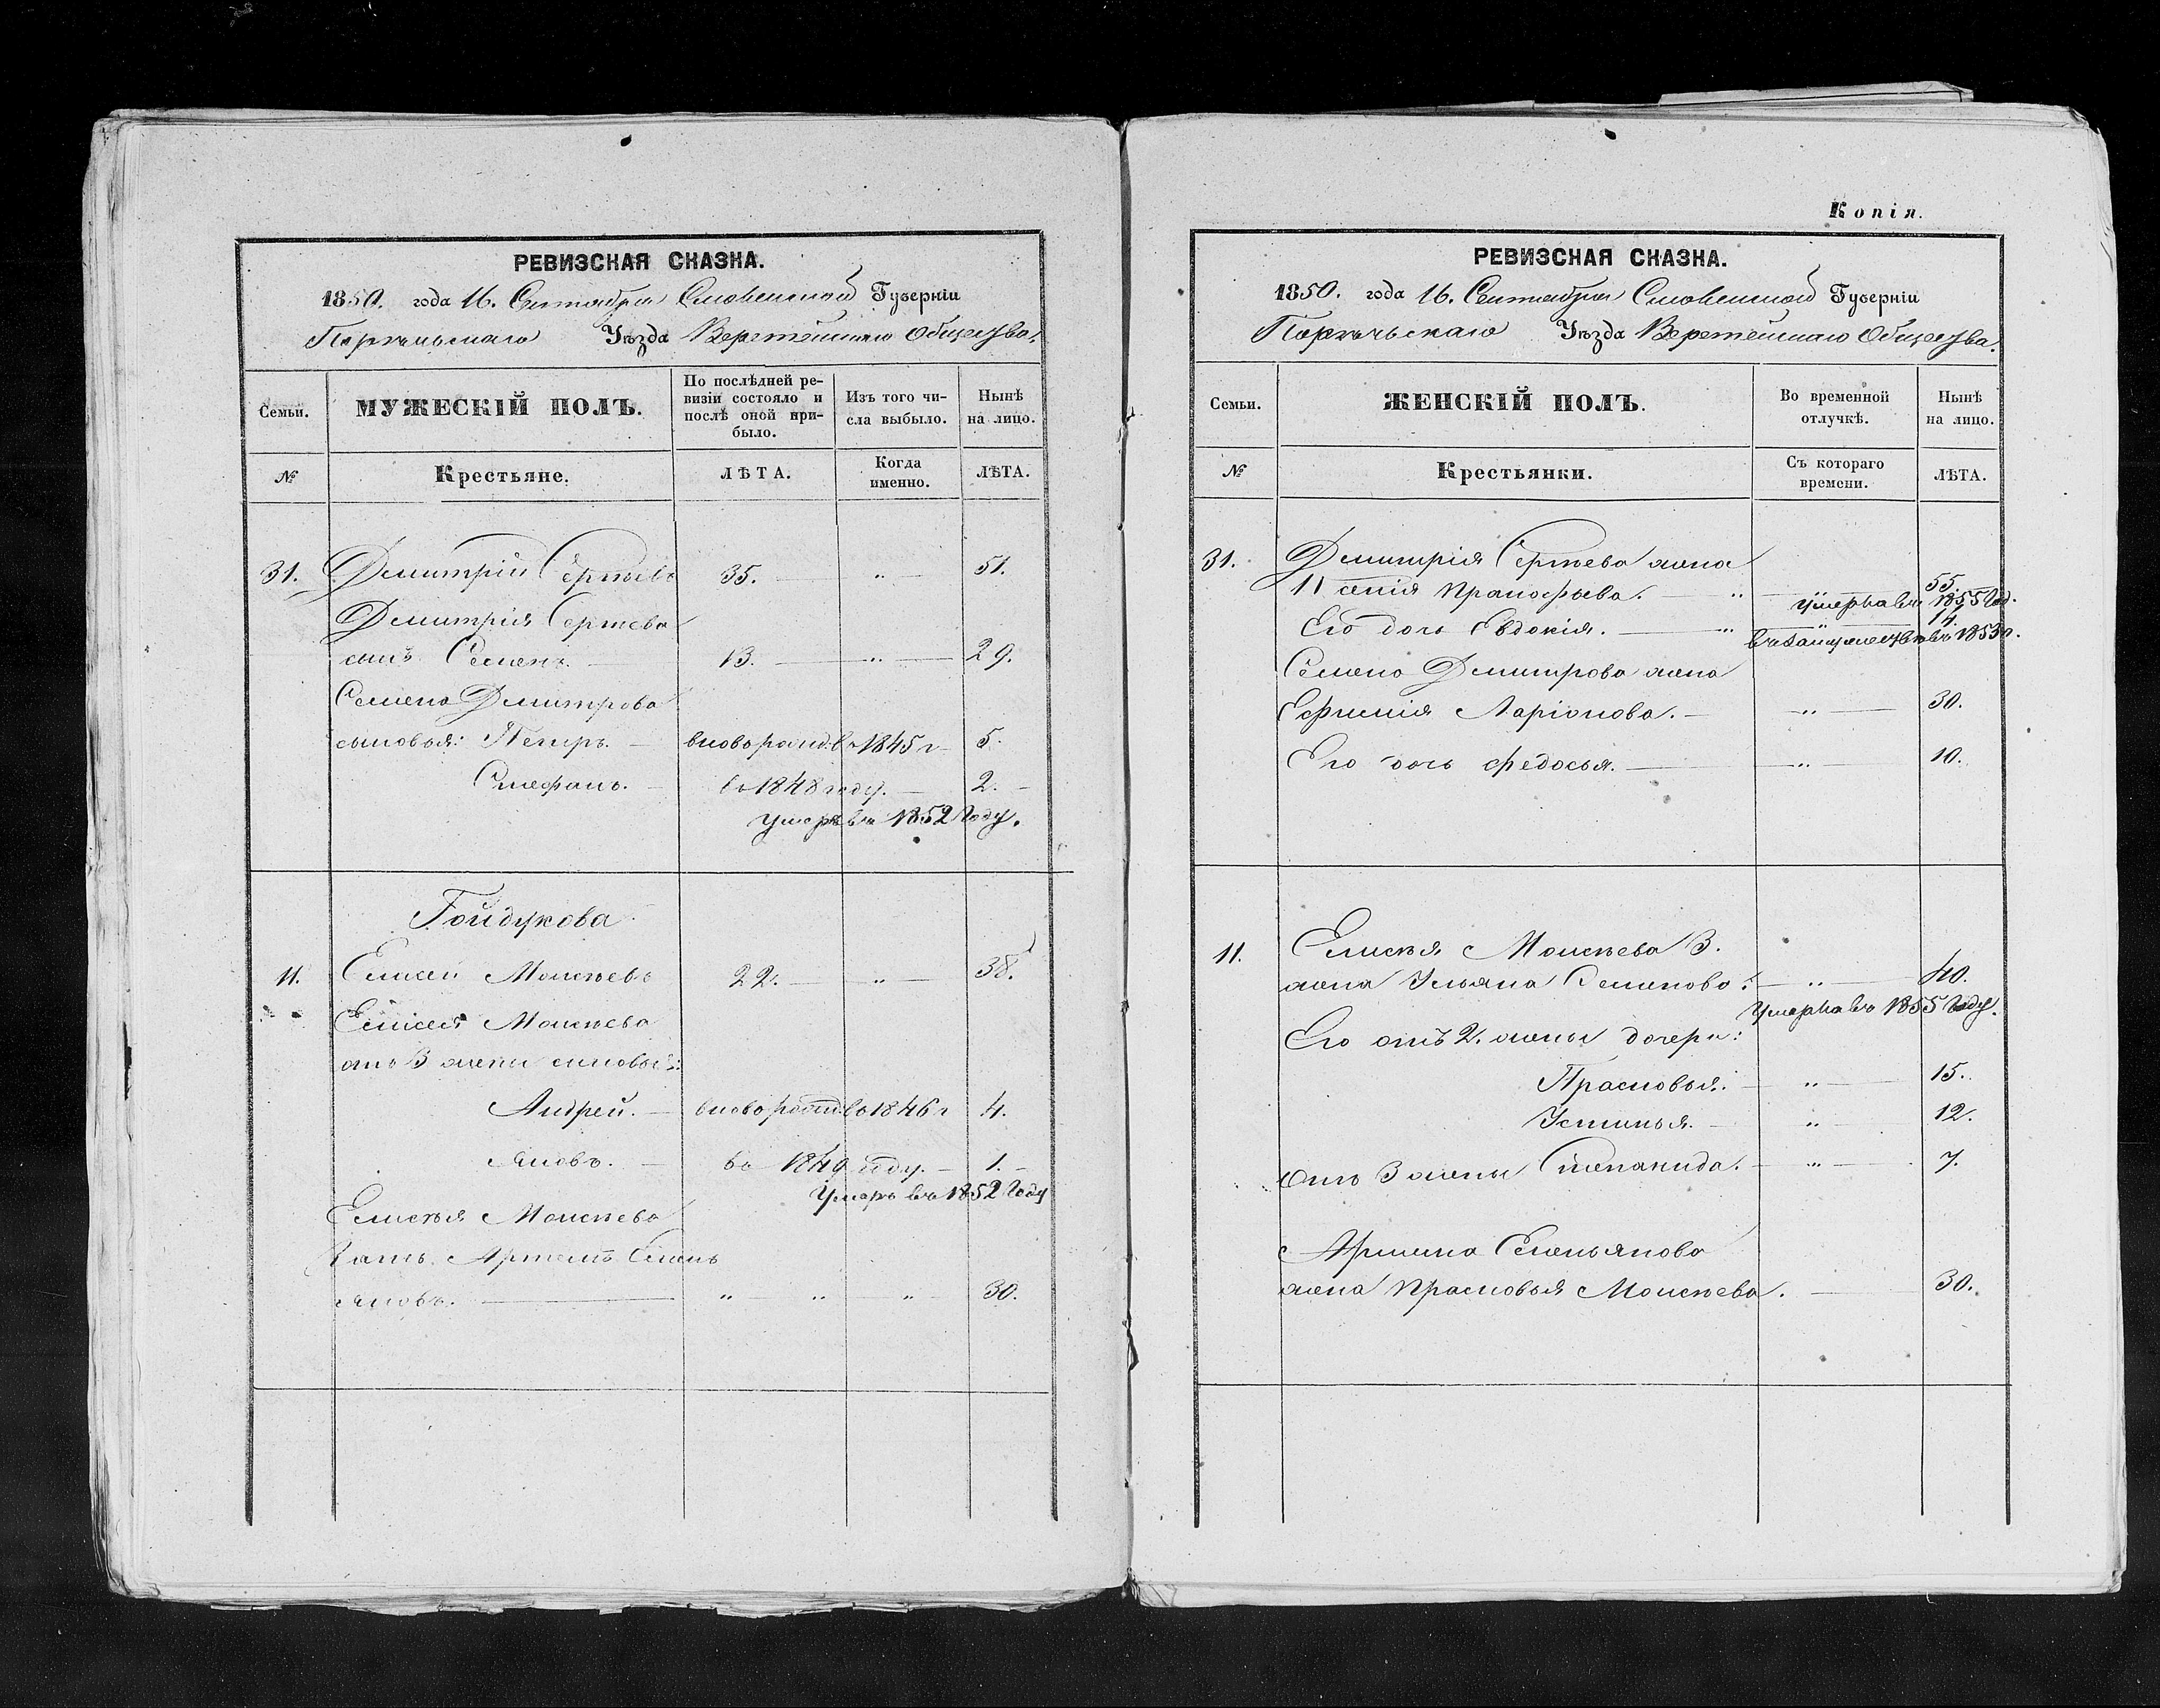 РЕВИЗСКАЯ СКАЗКА.
1850. года 16. Сентября Смоленской Губерніи
Порѣчьскаго Уѣзда Веретейскаго Общества.
Семьи.
МУЖЕСКІЙ ПОЛЪ.
По послѣдней ре-
визіи состояло и
послѣ оной при-
было.
Изъ того чи-
сла выбыло.
Нынѣ
на лицо.
№
Крестьяне.
ЛѢТА.
Когда
именно.
ЛѢТА.
31. Дмитрій Сергѣевъ 35. — „ — 51.
Дмитрія Сергѣева
сынъ Семенъ. — 13. — „ — 29.
Семена Дмитрова
сыновья: Петръ. — вновь рожд. въ 1845 г 5.
Стефанъ. — въ 1848 году. — 2. —
умеръ въ 1852 Году.
Гойдукова
11. Елисей Моисѣевъ 22. — „ — 38.
Елисея Моисѣева
отъ 3 жены сыновья:
Андрей. — вновь рожд. въ 1846 г 4.
Яковъ. — въ 1849 году. — 1. —
Умеръ въ 1852 Году
Елисѣя Моисѣева
Зять Артемъ Емель
яновъ. — „ „ „ — 30.
Копія.
РЕВИЗСКАЯ СКАЗКА.
1850. года 16. Сентября Смоленской Губерніи
Порѣчьскаго Уѣзда Веретейскаго Общества.
Семьи.
ЖЕНСКІЙ ПОЛЪ.
Во временной
отлучкѣ.
Нынѣ
на лицо.
№
Крестьянки.
Съ котораго
времени.
ЛѢТА.
31. Дмитрія Сергѣева жена
Прокофьева. — „ — 55.
умерла въ 1855 Год.
Его дочь Евдокія. — „ — 14.
въ замужествѣ въ 1853 г.
Семена Дмитрова жена
Ефимія Ларіонова. — „ — 30.
Его дочь Федосья. — „ — 10.
11. Елисѣя Моисѣева 3.
жена Ульяна Семенова. — „ — 40.
Умерла въ 1855 Году.
Его отъ 2. жены дочери:
Прасковья. — „ — 15.
Устинья. — „ — 12.
Отъ 3 жены Степанида. — „ — 7.
Артема Емельянова
жена Прасковья Моисѣева. — 30.